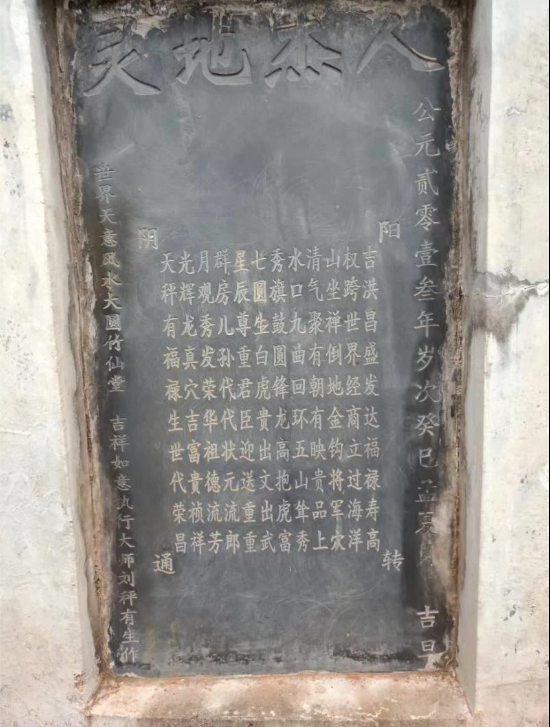 人杰地灵
公元贰零壹叁年岁次癸巳孟夏 吉旦
阳转
吉洪昌盛发达福禄寿高
权跨世界经商立过海洋
山坐禅倒地金钩将军穴
清气聚有朝有映贵品上
水口九曲回环五山耸秀
秀旗鼓圆锋龙高抱虎富
七圆生白虎貴出文出武
星辰尊重君臣迎送重重
群房儿孙代代状元流郎
月观秀发荣华祖德流芳
光辉龙真穴吉富貴祯祥
天秤有福禄生世代荣昌
阴通
世界天意风水大圆竹仙堂 吉祥如意执行大师刘秤有生作